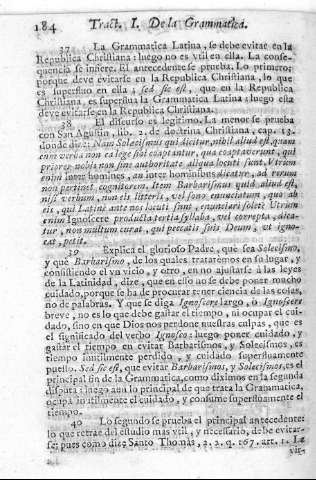 184 Tract. I. De la Grammatica.
37 La Grammatica Latina, se debe evitar en la
Republica Christiana: luego no es vtil en ella. La conse-
quencia se infiere. El antecedente se prueba. Lo primero:
porque debe evitarse en la Republica Christiana, lo que
es superfluo en ella; sed sic est, que en la Republica
Christiana, es superflua la Grammatica Latina: luego esta
deve evitarse en la Republica Christiana.
38 El discurso es legitimo. La menor se prueba
con San Agustin, lib. 2. de doctrina Christiana, cap. 13.
donde dize: Nam Solœcismus qui dicitur, nihil aliud est, quam
cum verba non ea lege sibi coaptantur, qua coaptaverunt, qui
priores nobis non sine authoritate aliqua locuti sunt. Vtrum
enim inter homines, an inter hominibus dicatur, ad rerum
non pertinet cognitorem. Item Barbarismus quid aliud est,
nisi verbum, non eis litteris, vel sono enunciatum, quo ab
eis, qui Latinè ante nos locuti sunt, enunciari solet? Vtrum
enim Ignoscere producta tertia syllaba, vel correpta, dica-
tur, non multum curat, qui peccatis suis Deum, vt ignos-
cat, petit.
39 Explica el glorioso Padre, què sea Solecismo,
y què Barbarismo, de los quales tratarèmos en su lugar, y
consistiendo el vn vicio, y otro, en no ajustarse à las leyes
de la Latinidad, dize, que en ello no se debe poner mucho
cuidado, porque se ha de procurar tener ciencia de las cosas,
no de palabras. Y que se diga Ignoscere largo, ò Ignoscere
breve, no es lo que debe gastar el tiempo, ni ocupar el cui-
dado, sino en que Dios nos perdone nuestras culpas, que es
el significado del verbo Ignosco: luego poner cuidado, y
gastar el tiempo en evitar Barbarismos, y Solecismos, es
tiempo inutilmente perdido, y cuidado superfluamente
puesto. Sed sic est, que evitar Barbarismos, y Solecismos, es el
principal fin de la Grammatica, como diximos en la segunda
disputa: luego aun lo principal de que trata la Grammatica,
ocupa inutilmente el cuidado, y consume superfluamente el
tiempo.
40 Lo segundo se prueba el principal antecedente:
lo que retrae del estudio mas vtil, y necessario, debe evitar-
se; pues como dize Santo Thomàs, 2. 2. q. 167. art. 1. Le